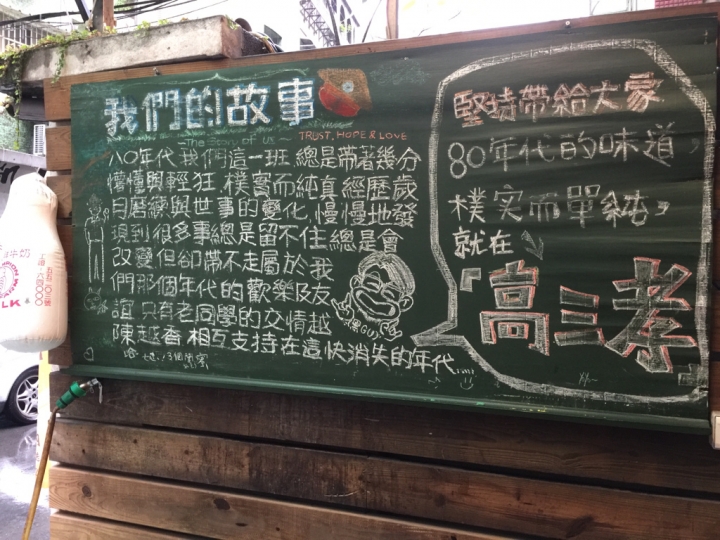 我們的故事
~ The Story of us ~
TRUST, HOPE & LOVE
八〇年代 我們這一班 總是帶著幾分
懵懂與輕狂. 樸實而純真 經歷歲
月磨練與世事的變化. 慢慢地發
現到很多事總是留不住 總是會
改變但卻帶不走屬於我
們那個年代的歡樂及友
誼 只有老同學的交情越
陳越香 相互支持在這快消失的年代
堅持帶給大家
80年代的味道,
樸实而單純,
就在
「高三孝」
牛奶